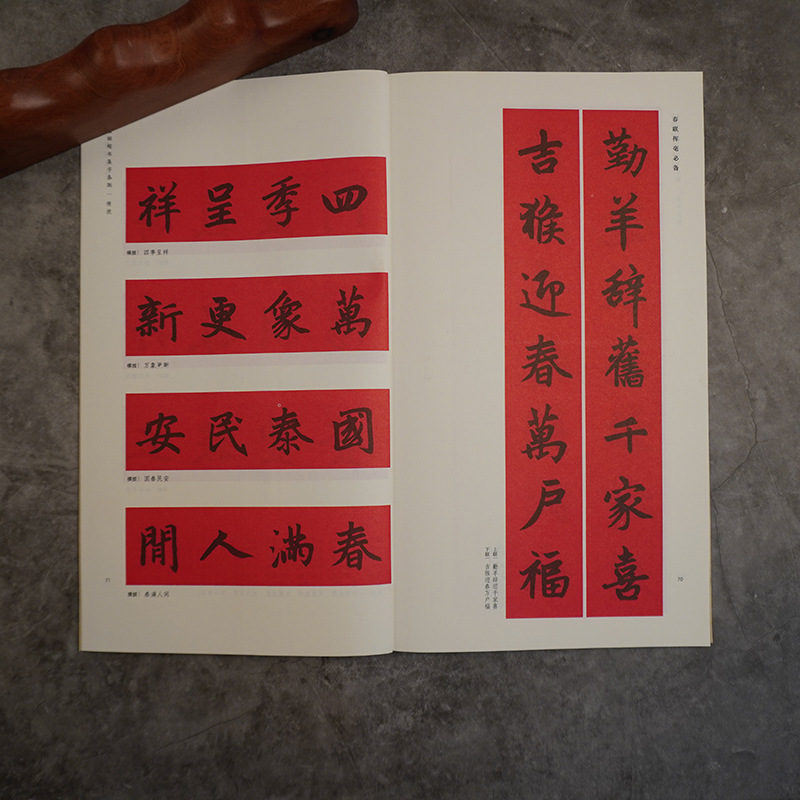 春联挥毫必备
勤羊辞舊千家喜
吉猴迎春萬戶福
上联｜勤羊辞旧千家喜
下联｜吉猴迎春万户福
70
四季呈祥
横披｜四季呈祥
萬象更新
横披｜万象更新
國泰民安
横披｜国泰民安
春滿人間
横披｜春满人间
楷书集字春联｜横披
71